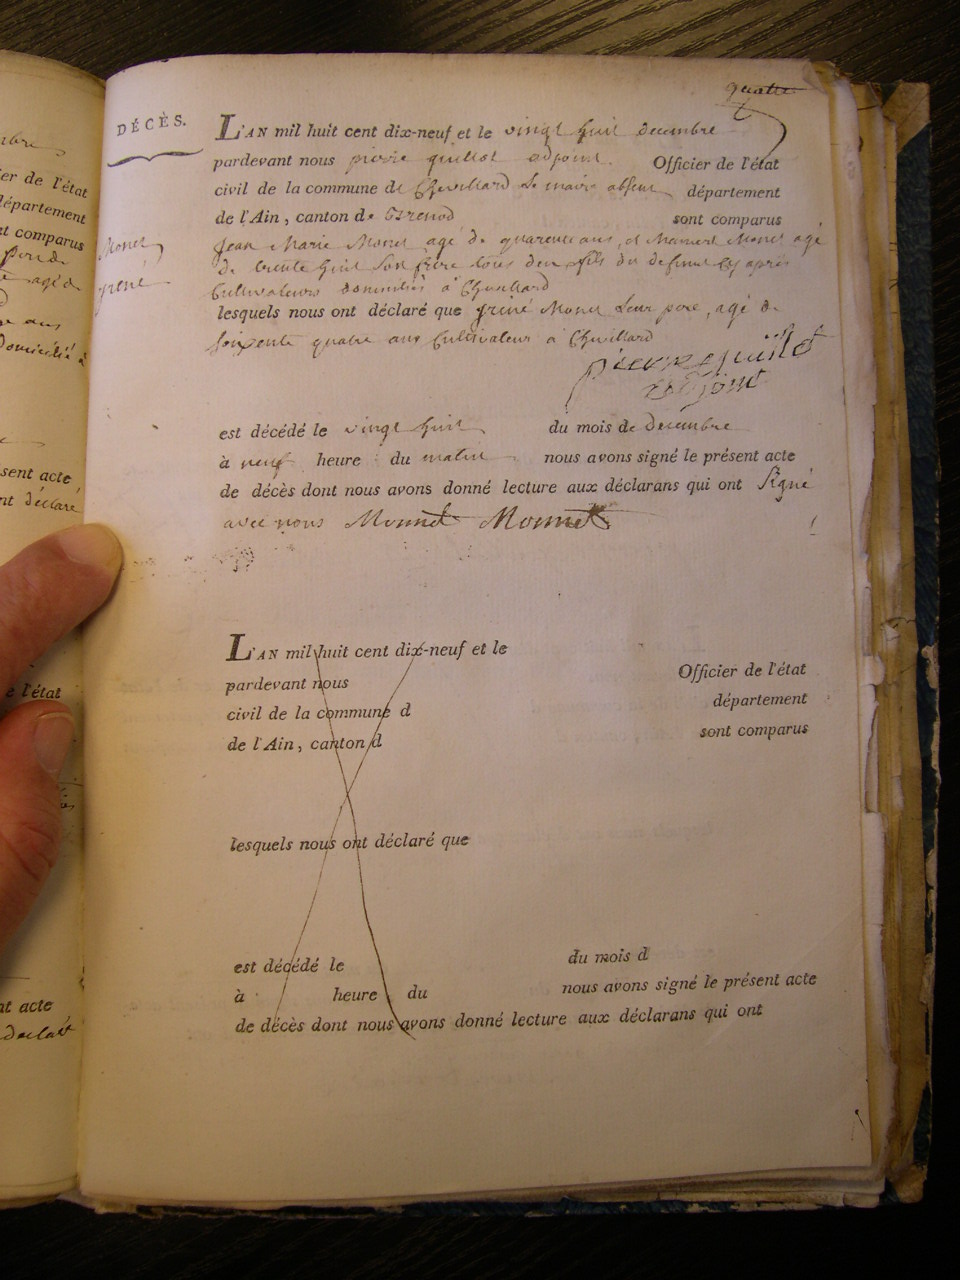 quatre
DÉCÈS.
L'AN mil huit cent dix-neuf et le vingt huit decembre
pardevant nous pierre quillot adjoint. Officier de l'état
civil de la commune de Chevillard le maire absent département
de l'Ain, canton de Brenod sont comparus
Monet
Jean Marie Monet agé de quarente ans, et Monet agé
de trente huit son frere tous deux fils du defunt cy après
Cultivateurs domiciliés à Chevillard
lesquels nous ont déclaré que Monet leur pere, agé de
soixente quatre ans Cultivateur à Chevillard
pierre quillot
adjoint
est décédé le vingt huit du mois de decembre
à neuf heure du matin nous avons signé le présent acte
de décès dont nous avons donné lecture aux déclarans qui ont signé
avec nous Monnet Monnet
L'AN mil huit cent dix-neuf et le
pardevant nous Officier de l'état
civil de la commune d département
de l'Ain, canton d sont comparus
lesquels nous ont déclaré que
est décédé le du mois d
à heure du nous avons signé le présent acte
de décès dont nous avons donné lecture aux déclarans qui ont